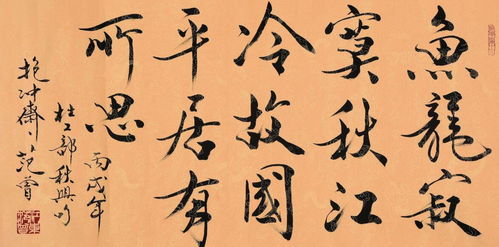 魚龍寂
寞秋江
冷故國
平居有
所思
丙戌年
杜工部秋興句
抱沖齋范曾